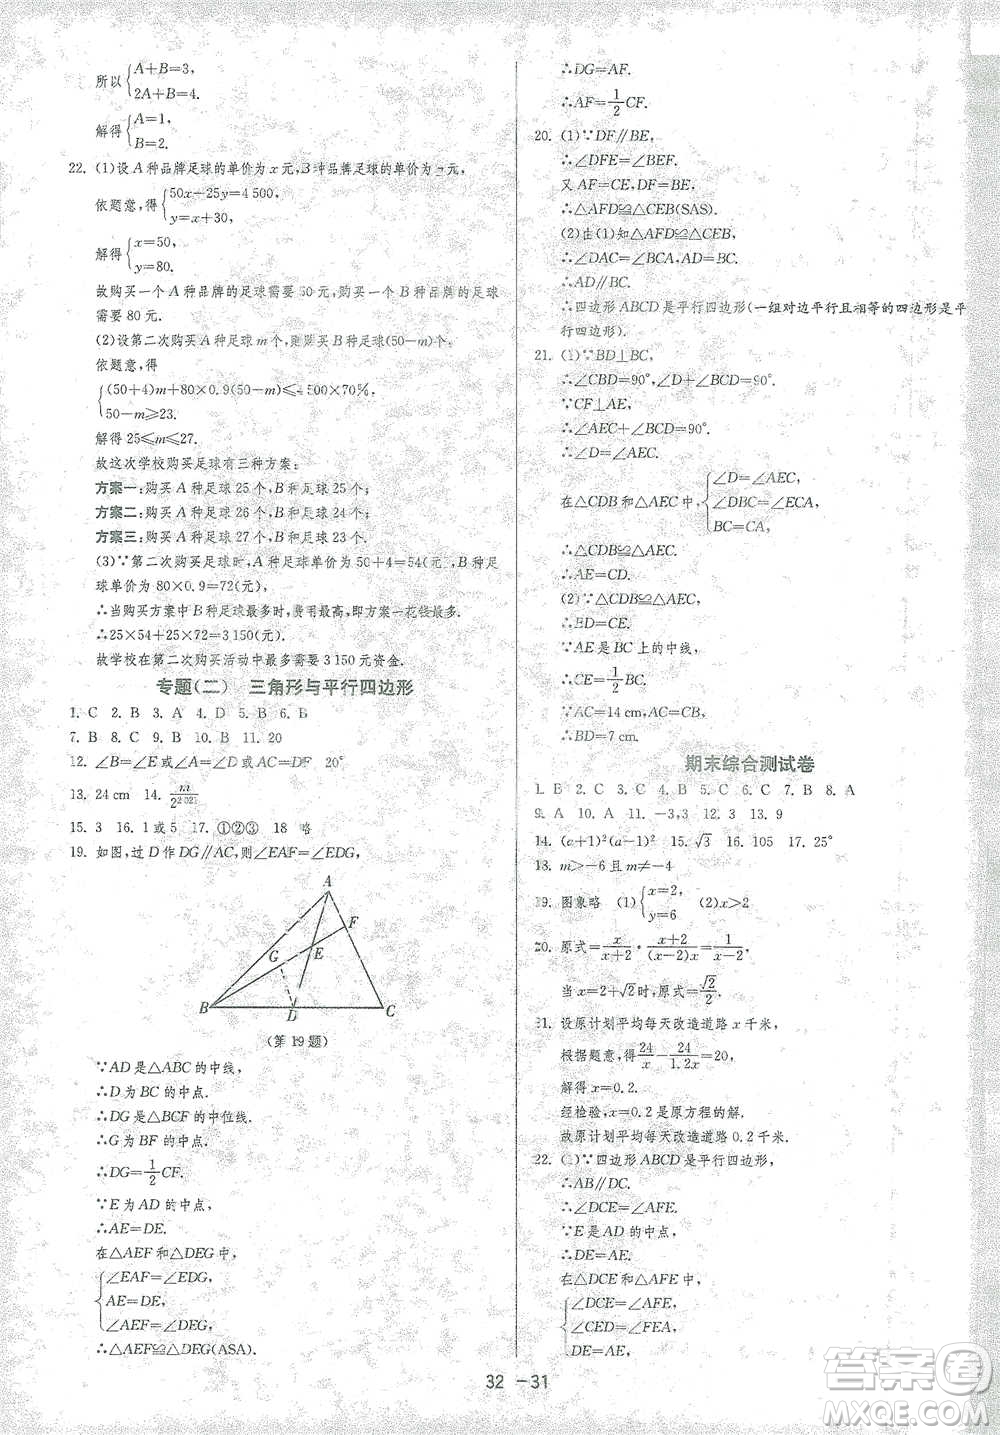 所以{A+B=3,
2A+B=4.
解得{A=1,
B=2.
22. (1)设A种品牌足球的单价为x元,B种品牌足球的单价为y元,
依题意,得{50x+25y=4 500,
y=x+30,
解得{x=50,
y=80.
故购买一个A种品牌的足球需要50元,购买一个B种品牌的足球
需要80元.
(2)设第二次购买A种足球m个,则购买B种足球(50-m)个,
依题意,得
{(50+4)m+80×0.9(50-m)≤4 500×70%,
50-m≥23.
解得25≤m≤27.
故这次学校购买足球有三种方案:
方案一:购买A种足球25个,B种足球25个;
方案二:购买A种足球26个,B种足球24个;
方案三:购买A种足球27个,B种足球23个.
(3)∵第二次购买足球时,A种足球单价为50+4=54(元),B种足
球单价为80×0.9=72(元),
∴当购买方案中B种足球最多时,费用最高,即方案一花钱最多.
∴25×54+25×72=3 150(元).
故学校在第二次购买活动中最多需要3 150元资金.
专题(二) 三角形与平行四边形
1. C 2. B 3. A 4. D 5. B 6. B
7. B 8. C 9. B 10. B 11. 20
12. ∠B=∠E或∠A=∠D或AC=DF 20°
13. 24 cm 14. m/2^2 021
15. 3 16. 1或5 17. ①②③ 18 略
19. 如图,过D作DG∥AC,则∠EAF=∠EDG,
A
F
E
G
B D C
(第19题)
∵AD是△ABC的中线,
∴D为BC的中点.
∴DG是△BCF的中位线.
∴G为BF的中点.
∴DG=1/2CF.
∵E为AD的中点,
∴AE=DE.
在△AEF和△DEG中,
{∠EAF=∠EDG,
AE=DE,
∠AEF=∠DEG,
∴△AEF≌△DEG(ASA).
∴DG=AF.
∴AF=1/2CF.
20. (1)∵DF∥BE,
∴∠DFE=∠BEF.
又AF=CE,DF=BE,
∴△AFD≌△CEB(SAS).
(2)由(1)知△AFD≌△CEB,
∴∠DAC=∠BCA,AD=BC.
∴AD∥BC.
∴四边形ABCD是平行四边形(一组对边平行且相等的四边形是平
行四边形).
21. (1)∵BD⊥BC,
∴∠CBD=90°,∠D+∠BCD=90°.
∵CF⊥AE,
∴∠AEC+∠BCD=90°.
∴∠D=∠AEC.
在△CDB和△AEC中,{∠D=∠AEC,
∠DBC=∠ECA,
BC=CA,
∴△CDB≌△AEC.
∴AE=CD.
(2)∵△CDB≌△AEC,
∴BD=CE.
∵AE是BC上的中线,
∴CE=1/2BC.
∵AC=14 cm,AC=CB,
∴BD=7 cm.
期末综合测试卷
1. B 2. C 3. C 4. B 5. C 6. C 7. B 8. A
9. A 10. A 11. -3,3 12. 3 13. 9
14. (c+1)²(a-1)² 15. √3 16. 105 17. 25°
18. m>-6且m≠-4
19. 图象略 (1){x=2,
y=6 (2)x>2
20. 原式=x/(x+2)·(x+2)/((x-2)x)=1/(x-2),
当x=2+√2时,原式=√2/2.
21. 设原计划平均每天改造道路x千米,
根据题意,得24/x-24/1.2x=20,
解得x=0.2.
经检验,x=0.2是原方程的解.
故原计划平均每天改造道路0.2千米.
22. (1)∵四边形ABCD是平行四边形,
∴AB∥DC.
∴∠DCE=∠AFE.
∵E是AD的中点,
∴DE=AE.
在△DCE和△AFE中,
{∠DCE=∠AFE,
∠CED=∠FEA,
DE=AE,
32 -31
答案圈
MXQE.COM